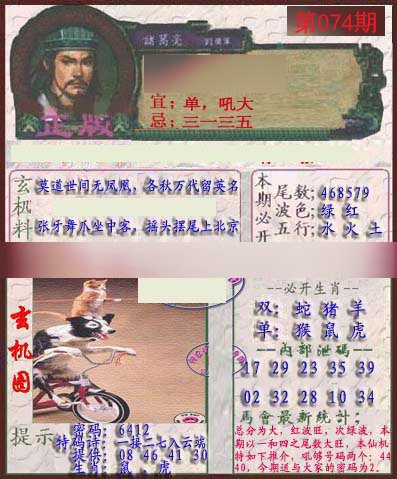 第074期
諸葛亮
劉備軍
宜：单，吼大
忌：三一三五
正版
玄机料
莫道世间无凤凰，各秋万代留英名
张牙舞爪坐中客，摇头摆尾上北京
本期必开
尾数：468579
波色：绿 红
五行：水 火 土
玄机图
必开生肖
双：蛇 猪 羊
单：猴 鼠 虎
內部泄码
17 29 23 35 39
02 32 28 10 34
馬會最新統计：
总分为大，红波旺，次绿波，本
期以一和四之尾数大旺，本仙机
特如下推介，吼够号码两个：44
40，今期送与大家的密码为2。
提示
密码：6412
特码诗：一接二七入云端
提供：08 46 41 30
生肖：鼠、虎